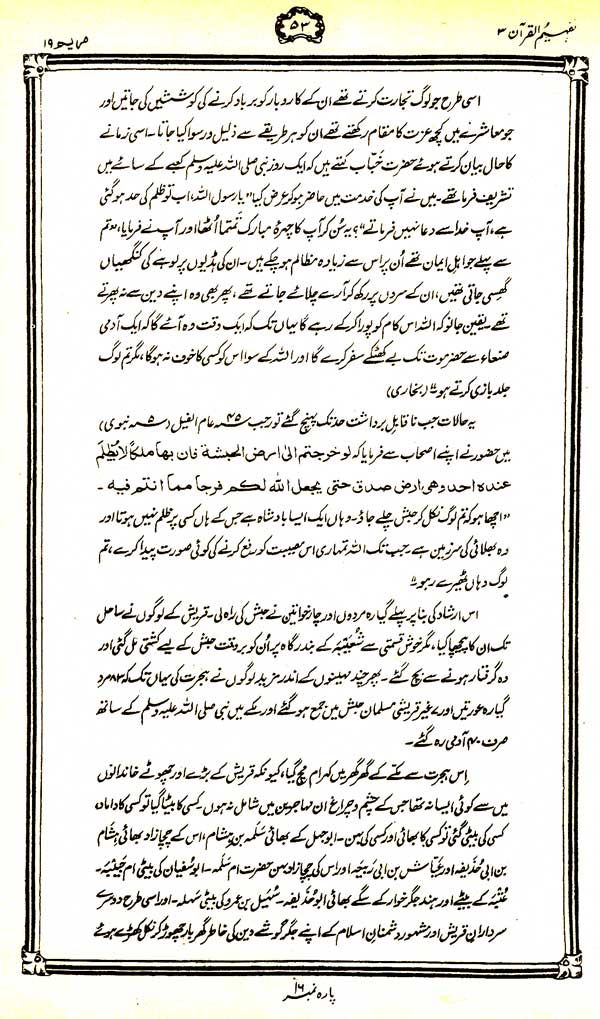 تفہیم القرآن ۳
۵۳
مریم ۱۹
اسی طرح جو لوگ تجارت کرتے تھے ان کے کاروبار کو برباد کرنے کی کوششیں کی جاتیں اور
جو معاشرے میں کچھ عزت کا مقام رکھتے تھے ان کو ہر طریقے سے ذلیل و رسوا کیا جاتا۔ اسی زمانے
کا حال بیان کرتے ہوئے حضرت خبّاب کہتے ہیں کہ ایک روز نبی صلی اللہ علیہ وسلم کعبے کے سائے میں
تشریف فرما تھے۔ میں نے آپ کی خدمت میں حاضر ہو کر عرض کیا "یا رسول اللہ، اب تو ظلم کی حد ہو گئی
ہے، آپ خدا سے دعا نہیں فرماتے"؟ یہ سُن کر آپ کا چہرۂ مبارک تمتما اُٹھا اور آپ نے فرمایا، "تم
سے پہلے جو اہلِ ایمان تھے اُن پر اس سے زیادہ مظالم ہو چکے ہیں۔ ان کی ہڈیوں پر لوہے کی کنگھیاں
گھِسی جاتی تھیں، ان کے سروں پر رکھ کر آرے چلائے جاتے تھے، پھر بھی وہ اپنے دین سے نہ پھرتے
تھے۔ یقین جانو کہ اللہ اس کام کو پورا کر کے رہے گا یہاں تک کہ ایک وقت وہ آئے گا کہ ایک آدمی
صنعاء سے حضرموت تک بے کھٹکے سفر کرے گا اور اللہ کے سوا اس کو کسی کا خوف نہ ہوگا، مگر تم لوگ
جلد بازی کرتے ہو" (بخاری)
یہ حالات جب ناقابلِ برداشت حد تک پہنچ گئے تو رجب ۴۵؁ عام الفیل (۵؁ نبوی)
میں حضور نے اپنے اصحاب سے فرمایا کہ لوخرجتم الیٰ ارض الحبشة فان بها ملکًا لا یُظلم
عنده احد وهی ارض صدق حتی یجعل الله لکم فرجا مما انتم فیه ۔
"اچھا ہو کہ تم لوگ نکل کر حبش چلے جاؤ۔ وہاں ایک ایسا بادشاہ ہے جس کے ہاں کسی پر ظلم نہیں ہوتا اور
وہ بھلائی کی سرزمین ہے۔ جب تک اللہ تمہاری اس مصیبت کو رفع کرنے کی کوئی صورت پیدا کرے، تم
لوگ وہاں ٹھیرے رہو"
اس ارشاد کی بنا پر پہلے گیارہ مردوں اور چار خواتین نے حبش کی راہ لی۔ قریش کے لوگوں نے ساحل
تک ان کا پیچھا کیا، مگر خوش قسمتی سے شُعَیبَہ کے بندرگاہ پر اُن کو بر وقت حبش کے لیے کشتی مل گئی اور
وہ گرفتار ہونے سے بچ گئے۔ پھر چند مہینوں کے اندر مزید لوگوں نے ہجرت کی یہاں تک کہ ۸۳ مرد
گیارہ عورتیں اور ۷ غیر قریشی مسلمان حبش میں جمع ہو گئے اور مکے میں نبی صلی اللہ علیہ وسلم کے ساتھ
صرف ۴۰ آدمی رہ گئے۔
اِس ہجرت سے مکّے کے گھر گھر میں کہرام مچ گیا، کیونکہ قریش کے بڑے اور چھوٹے خاندانوں
میں سے کوئی ایسا نہ تھا جس کے چشم و چراغ ان مہاجرین میں شامل نہ ہوں۔ کِسی کا بیٹا گیا تو کسی کا داماد،
کسی کی بیٹی گئی تو کسی کا بھائی اور کسی کی بہن۔ ابوجہل کے بھائی سَلَمہ بن ہِشام، اس کے چچازاد بھائی ہِشام
بن ابی حُذیفہ اور عیّاش بن ابی رَبیعہ اور اس کی چچازاد بہن حضرت ام سَلَمہ۔ ابوسُفیان کی بیٹی ام حَبِیبَہ۔
عُتبَہ کے بیٹے اور ہند جگر خوار کے سگے بھائی ابوحُذیفہ۔ سُہَیل بن عمرو کی بیٹی سَہلہ۔ اور اسی طرح دوسرے
سردارانِ قریش اور مشہور دشمنانِ اسلام کے اپنے جگر گوشے دین کی خاطر گھر بار چھوڑ کر نکل کھڑے ہوئے
پارہ نمبر ۱۶